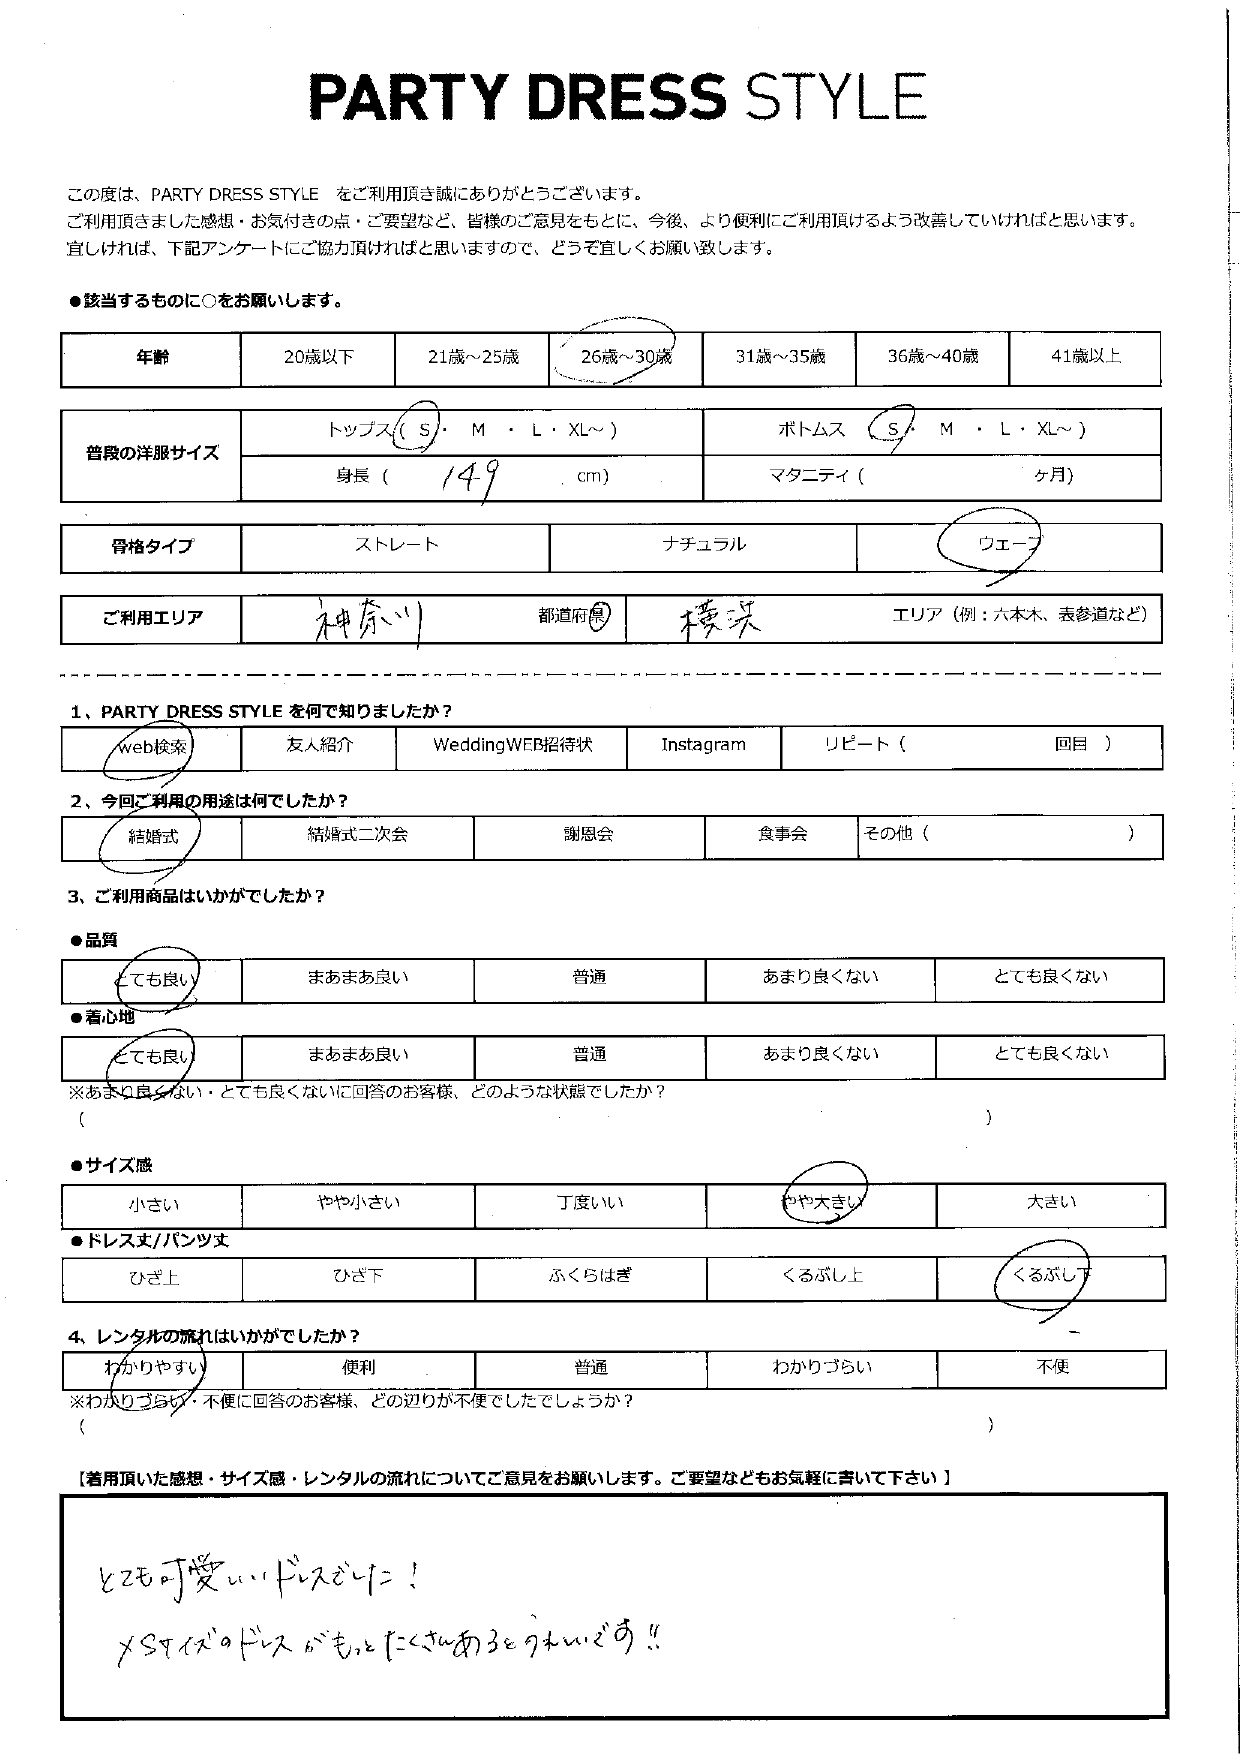 PARTY DRESS STYLE
この度は、PARTY DRESS STYLE をご利用頂き誠にありがとうございます。
ご利用頂きました感想・お気付きの点・ご要望など、皆様のご意見をもとに、今後、より便利にご利用頂けるよう改善していければと思います。
宜しければ、下記アンケートにご協力頂ければと思いますので、どうぞ宜しくお願い致します。
●該当するものに○をお願いします。
年齢 20歳以下 21歳～25歳 26歳～30歳 31歳～35歳 36歳～40歳 41歳以上
普段の洋服サイズ トップス( S ・ M ・ L ・ XL～ ) ボトムス ( S ・ M ・ L ・ XL～ )
身長 ( 149 cm) マタニティ ( ヶ月)
骨格タイプ ストレート ナチュラル ウェーブ
ご利用エリア 神奈川 都道府県 横浜 エリア（例：六本木、表参道など）
1、PARTY DRESS STYLE を何で知りましたか？
web検索 友人紹介 WeddingWEB招待状 Instagram リピート（ 回目 ）
2、今回ご利用の用途は何でしたか？
結婚式 結婚式二次会 謝恩会 食事会 その他（ ）
3、ご利用商品はいかがでしたか？
●品質
とても良い まあまあ良い 普通 あまり良くない とても良くない
●着心地
とても良い まあまあ良い 普通 あまり良くない とても良くない
※あまり良くない・とても良くないに回答のお客様、どのような状態でしたか？
（ ）
●サイズ感
小さい やや小さい 丁度いい やや大きい 大きい
●ドレス丈/パンツ丈
ひざ上 ひざ下 ふくらはぎ くるぶし上 くるぶし下
4、レンタルの流れはいかがでしたか？
わかりやすい 便利 普通 わかりづらい 不便
※わかりづらい・不便に回答のお客様、どの辺りが不便でしたでしょうか？
（ ）
【着用頂いた感想・サイズ感・レンタルの流れについてご意見をお願いします。ご要望などもお気軽に書いて下さい 】
とても可愛いいドレスでした！
XSサイズのドレスがもっとたくさんあるとうれしいです!!